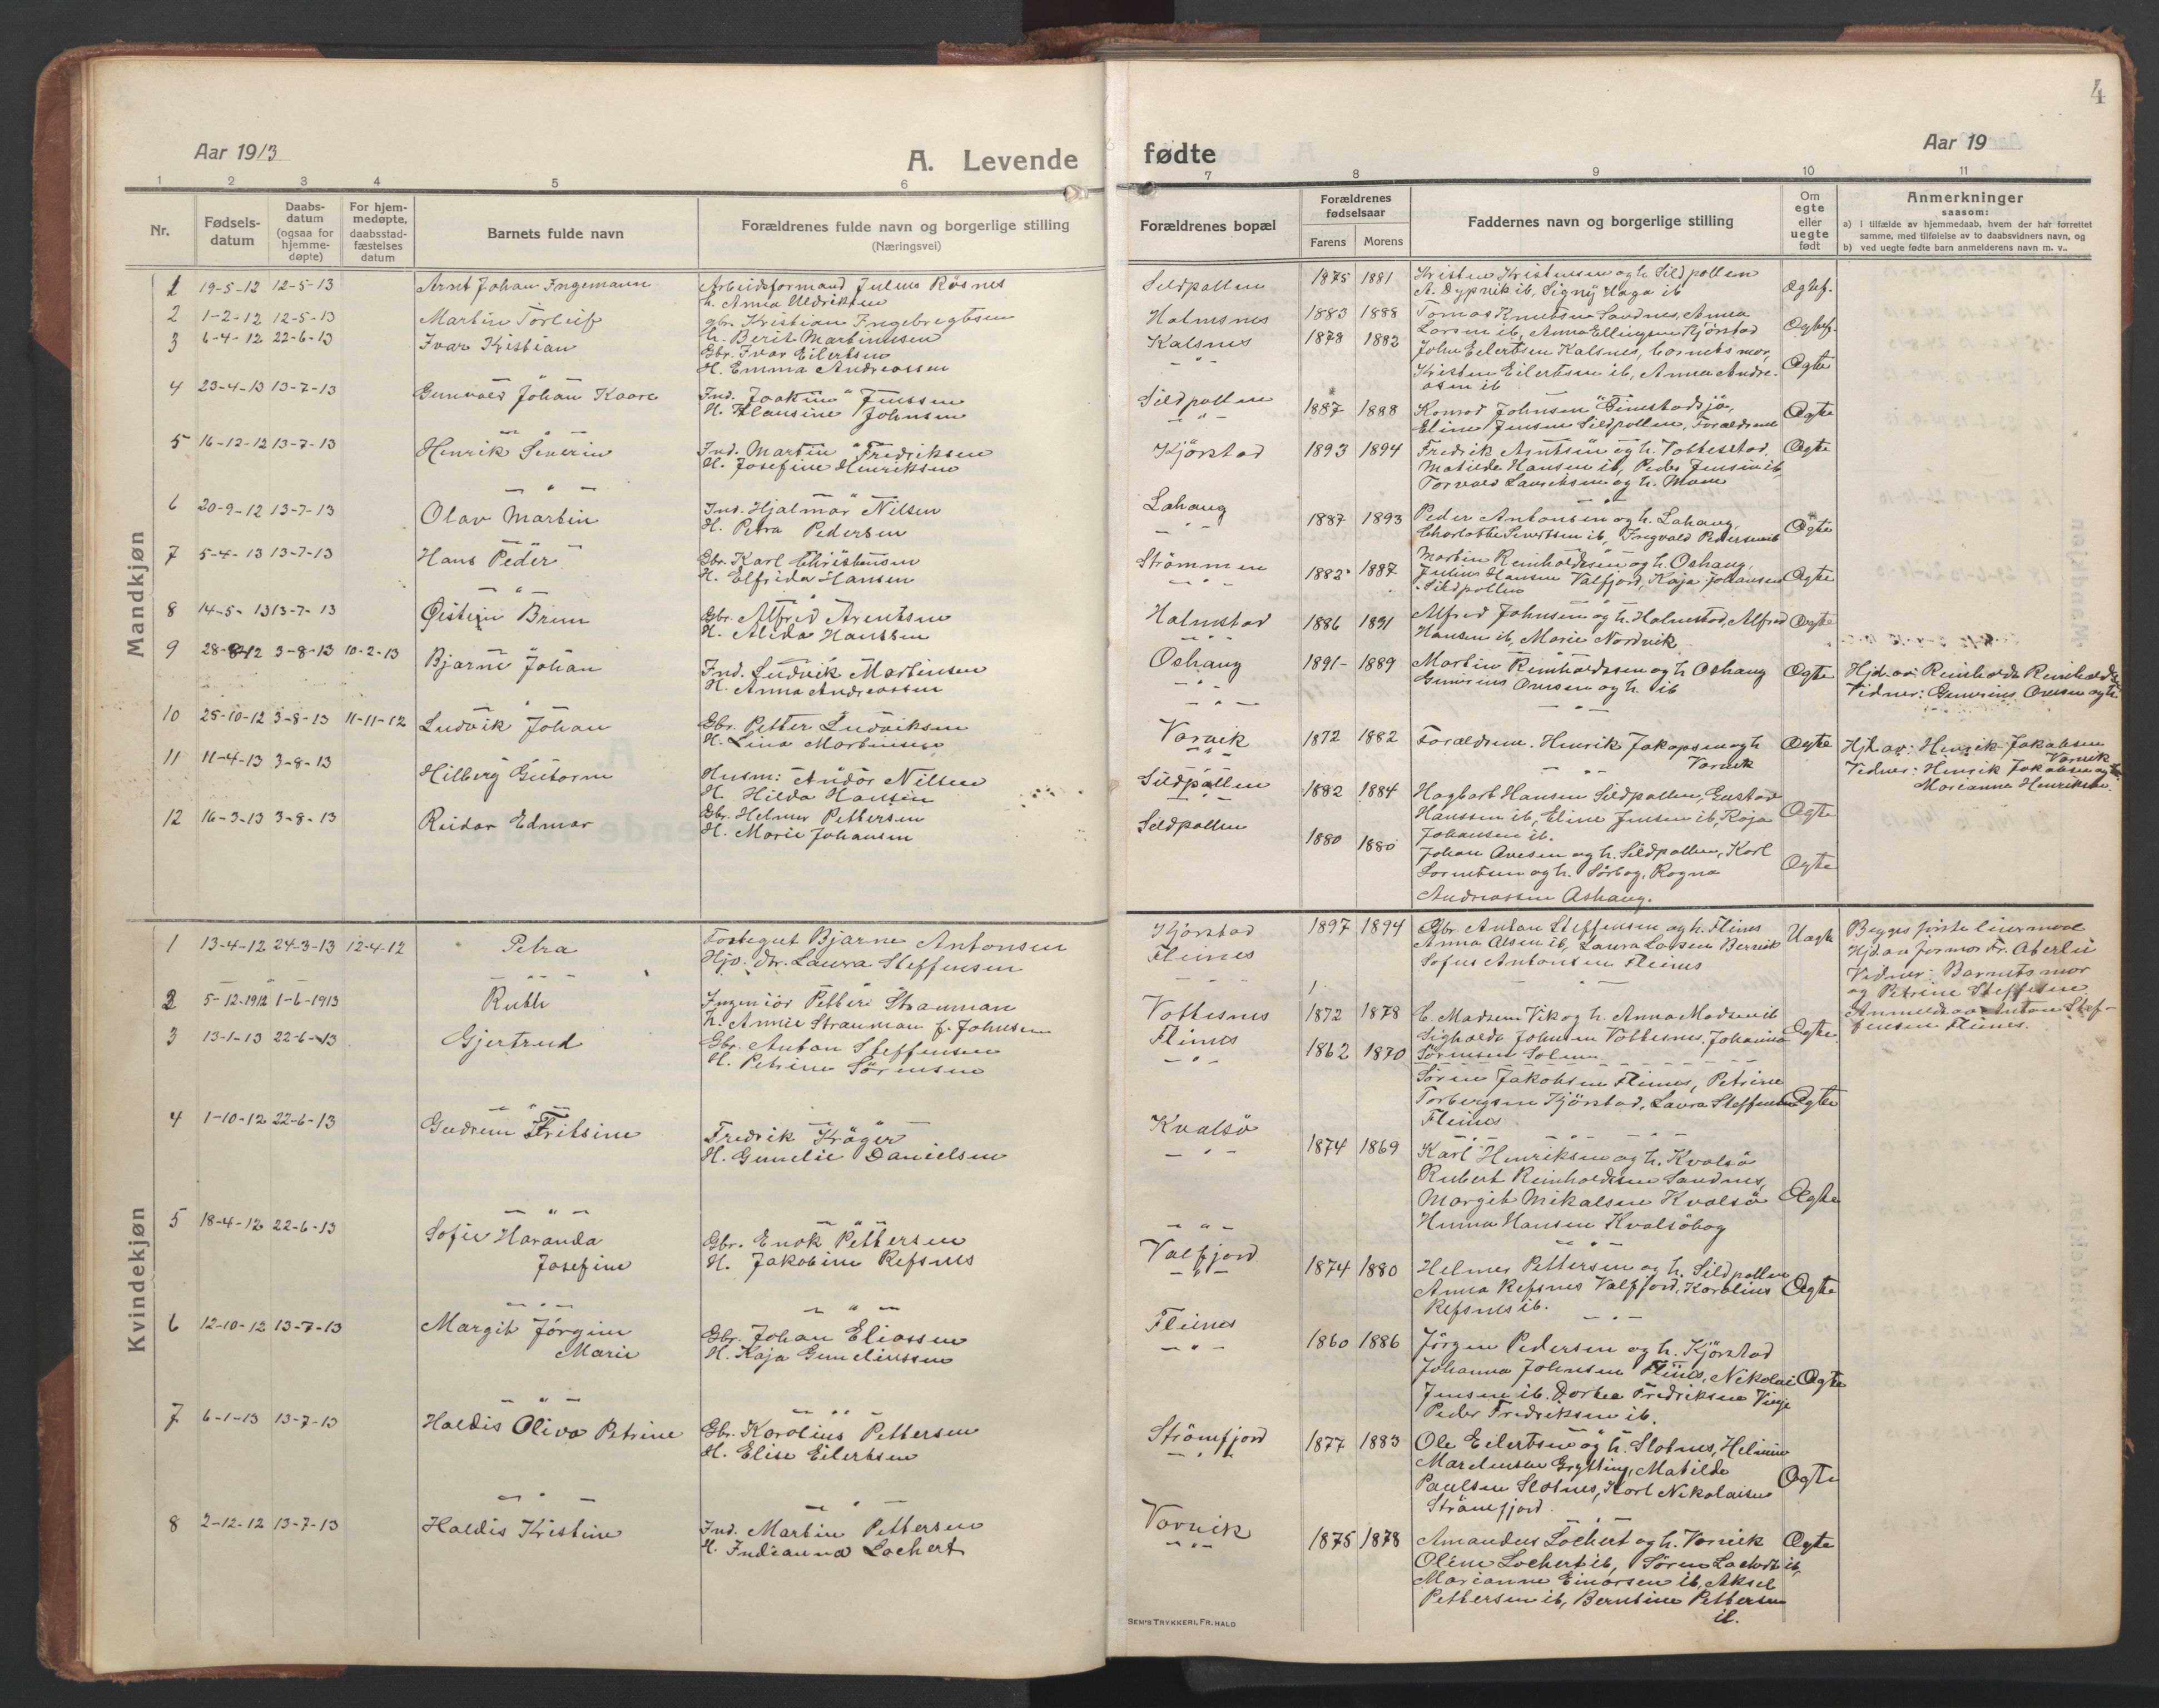 4
Aar 1913
A. Levende
fødte
Aar 19
1 2 3 4 5 6 7 8 9 10 11
Nr.
Fødsels-
datum
Daabs-
datum
(ogsaa for
hjemme-
døpte)
For hjem-
medøpte,
daabsstad-
fæstelses
datum
Barnets fulde navn
Forældrenes fulde navn og borgerlige stilling
(Næringsvei)
Forældrenes bopæl
Forældrenes
fødselsaar
Farens Morens
Faddernes navn og borgerlige stilling
Om
egte
eller
uegte
født
Anmerkninger
saasom:
a) i tilfælde av hjemmedaab, hvem der har forrettet
samme, med tilføielse av to daabsvidners navn, og
b) ved uegte fødte barn anmelderens navn m. v..
Mandkjøn
1 19-5-12 12-5-13 Arnt Johan Ingemann
Arbeidsformand Julius Røsnes
h. Anna Uldriksen
Sildpollen 1875 1881
Kristen Kristensen og h. Sildpollen
A. Dypvik ib, Signy Haga ib
Egtef.
2 1-2-12 12-5-13 Martin Torleif
gbr. Kristian Ingebregtsen
h. Berit Martinusen
Holmsnes 1883 1888
Tomas Knutsen Sandnes, Anna
Larsen ib, Anna Ellingsen Kjørstad
Egtef.
3 6-4-12 22-6-13 Ivar Kristian
Gbr. Ivar Eilertsen
H. Emma Andreassen
Kalsnes 1878 1882
John Eilertsen Kalsnes, barnets mor,
Kristen Eilertsen ib, Anna Andre-
asen ib
Egte
4 23-4-13 13-7-13 Gunvald Johan Kaare
Ind. Joakim Jenssen
H. Klausine Johnsen
Sildpollen 1887 1888
Konrad Johnsen Finstadsjø,
Eline Jensen Sildpollen, Forældrene
Egte
5 16-12-12 13-7-13 Henrik Severin
Ind. Martin Fredriksen
H. Josefine Henriksen
Kjørstad 1893 1894
Fredrik Arntsen og h. Vottestad,
Matilde Hansen ib, Peder Jensen ib,
Torvald Lauritsen og h. Moen
Egte
6 20-9-12 13-7-13 Olav Martin
Ind. Hjalmar Nilsen
H. Petra Pedersen
Lahaug 1887 1893
Peder Antonsen og h. Lahaug,
Charlotte Sivertsen ib, Ingvald Pedersen ib
Egte
7 5-4-13 13-7-13 Hans Peder
Gbr. Karl Christensen
H. Elfrida Hansen
Strømmen 1882 1887
Martin Reinholdsen og h. Oshaug,
Julius Hansen Valfjord, Kaja Johansen
Sildpollen
Egte
8 14-5-13 13-7-13 Øistein Brun
Gbr. Alfred Arentsen
H. Alida Hanssen
Holmstad 1886 1891
Alfred Johnsen og h. Holmstad, Alfred
Hansen ib, Marie Nordvik
Egte
9 28-8-12 3-8-13 10-2-13 Bjarne Johan
Ind. Ludvik Martinsen
H. Anna Andreassen
Oshaug 1891 1889
Martin Reinholdssen og h Oshaug
Gunerius Ovesen og h. ib
Egte
Hjd. av: Reinholda Reinholdsen
Vidner: Gunerius Ovesen og h.
10 25-10-12 3-8-13 11-11-12 Ludvik Johan
Gbr. Petter Ludviksen
H. Lina Martinsen
Vorvik 1872 1882
Forældrene. Henrik Jakopsen og h
Vorvik
Egte
Hjd. av: Henrik Jakobsen
Vorvik
Vidner: Henrik Jakobsen og
Marianna Henriksen.
11 11-4-13 3-8-13 Hilberg Gutorm
Husm: Andor Nilsen
H. Hilda Hansen
Sildpollen 1882 1884
Hagbart Hansen Sildpollen, Gustav
Hanssen ib, Eline Jensen ib, Kaja
Johansen ib.
Egte
12 16-3-13 3-8-13 Reidar Edmar
Gbr. Helmer Pettersen
H. Marie Johansen
Sildpollen 1880 1880
Johan Ovesen og h. Sildpollen, Karl
Sorentsen og h. Sørbog, Ragna
Andreassen Oshaug.
Egte
Kvindekjøn
1 13-4-12 24-3-13 12-4-12 Petra
Bjarne Antonsen
Laura Steffensen
Kjørstad
Fleines
1897 1894
Gbr. Anton Steffensen og h. Fleines
Anna Olsen ib, Laura Larsen Bervik
Sofus Antonsen Fleines
Uegte
Begges første leiermaal
Hjd. av jormor Fr. Oberlie
Vidner: Barnets mor
og Petrine Steffesen
Anmeldt av Anton Stef-
fensen Fleines.
2 5-12-1912 1-6-1913 Ruth
Ingeniør Petter Strauman
h. Annie Strauman f. Johnsen
Vottesnes 1872 1878
C. Madsen Vik og h. Anna Madsen ib
Sigholda Johnsen Vottesnes, Johanna
Sørensen Solenn
Egte
3 13-1-13 22-6-13 Gjertrud
Gbr. Anton Steffensen
H. Petrine Sørensen
Fleines 1862 1870
Søren Jakobsen Fleines, Petrine
Torbergsen Kjørstad, Laura Steffensen
Fleines
Egte
4 1-10-12 22-6-13 Gudrun Fritsine
Fredrik Krøger
H. Gunelie Danielsen
Kvalsø 1874 1869
Karl Henriksen og h. Kvalsø
Rubert Reinholdsen Sandnes,
Margit Mikalsen Kvalsø
Hansen Kvalsøbog
Egte
5 18-4-12 22-6-13 Sofie Haranda
Josefine
Gbr. Enok Pettersen
H. Jakobine Refsnes
Valfjord 1874 1880
Helmer Pettersen og h. Sildpollen
Anna Refsnes Valfjord, Karolius
Refsnes ib.
Egte
6 12-10-12 13-7-13 Margit Jørgine
Marie
Gbr. Johan Eliassen
H. Kaja Guneliussen
Fleines 1860 1886
Jørgen Pedersen og h. Kjørstad
Johanna Johnsen Fleines, Nikolai
Jensen ib. Dortea Fredriksen Vinje
Peder Fredriksen ib.
Egte
7 6-1-13 13-7-13 Haldis Oliva Petrine
Gbr. Karolius Pettersen
H. Elise Eilertsen
Strømfjord 1877 1883
Ole Eilertsen og h. Slotnes, Helmine
Marelensen Grytting, Matilde
Paulsen Slotnes, Karl Nikolaisen
Strømfjord.
Egte
8 2-12-12 13-7-13 Haldis Kristine
Ind. Martin Pettersen
H. Indianna Lochert
Vorvik 1875 1878
Amandus Lochert og h. Vorvik
Oline Lochert ib, Søren Lochert ib,
Marianne Einarsen ib, Aksel
Pettersen ib, Berntine Pettersen
ib.
Egte
SEM'S TRYKKERI, FR. HALD